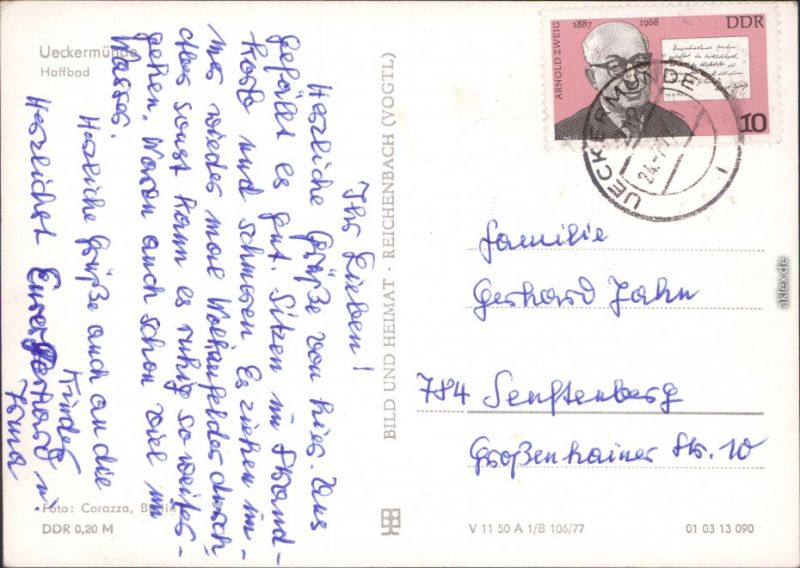 Ueckermünde
Haffbad
Ihr Lieben!
Herzliche Grüße von hier. Uns
gefällt es gut. Sitzen im Strand-
korb und schmoren. Es ziehen im-
mer wieder mal Wolkenfelder durch,
aber sonst kann es ruhig so weiter-
gehen. Waren auch schon viel im
Wasser.
Herzliche Grüße auch an die
Kinder
Herzlichst Eure Gerhard u.
Irma
Foto: Corazza, Berlin
DDR 0,20 M
BILD UND HEIMAT · REICHENBACH (VOGTL)
V 11 50 A 1/B 106/77
01 03 13 090
ARNOLD ZWEIG 1887 1968 DDR
10
UECKERMÜNDE
Familie
Gerhard Jahn
784 Senftenberg
Großenhainer Str. 10
aklex.de